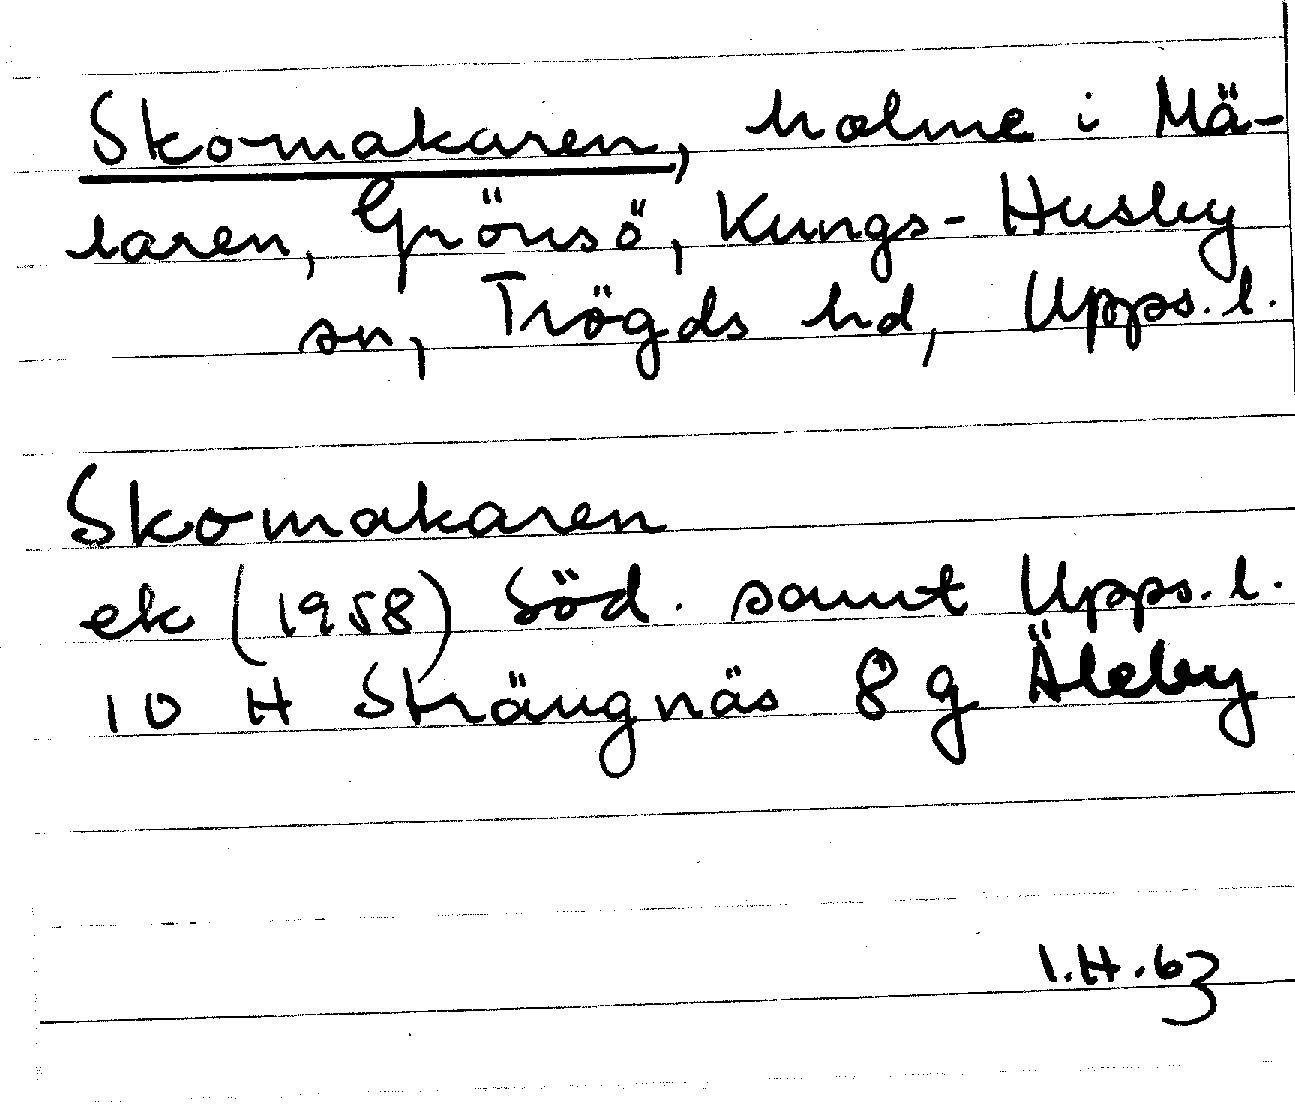 Skomakaren, holme i Mä-
laren, Grönsö, Kungs-Husby
sn, Trögds hd, Upps. l.
Skomakaren
ek (1958) Söd. samt Upps. l.
10 H Strängnäs 8 g Äleby
I.H. 63